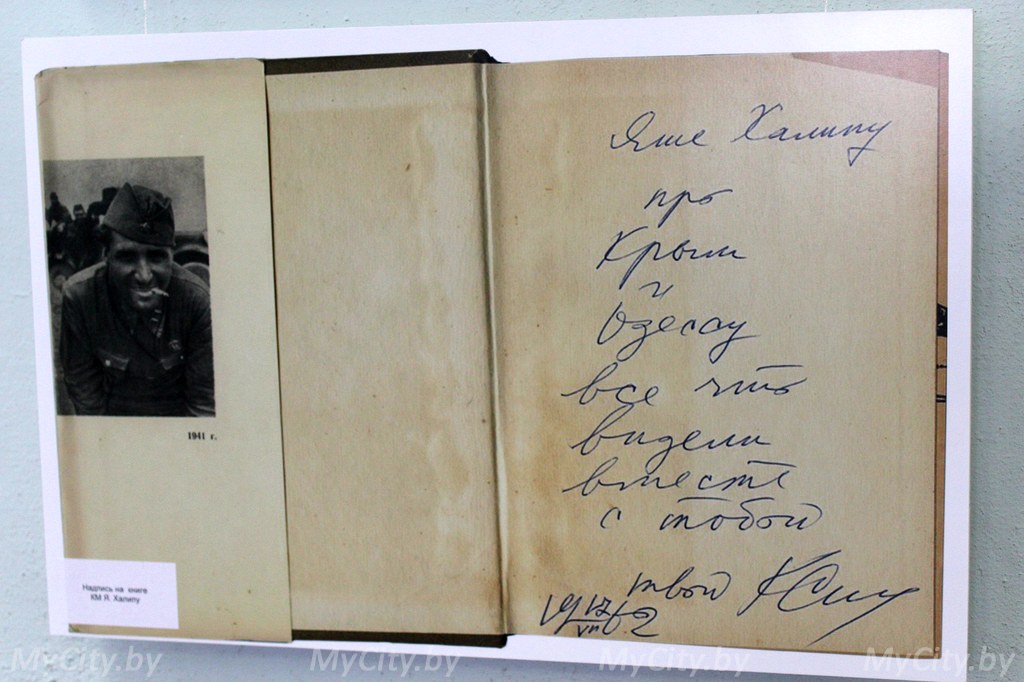 1941 г.
Надпись на книге
КМ Я. Халипу
Яше Халипу
про
Крым
и
Одессу
все что
видели
вместе
с тобой
твой КСим
19 17/VII 62
MyCity.by
MyCity.by
MyCity.by
MyCity.by